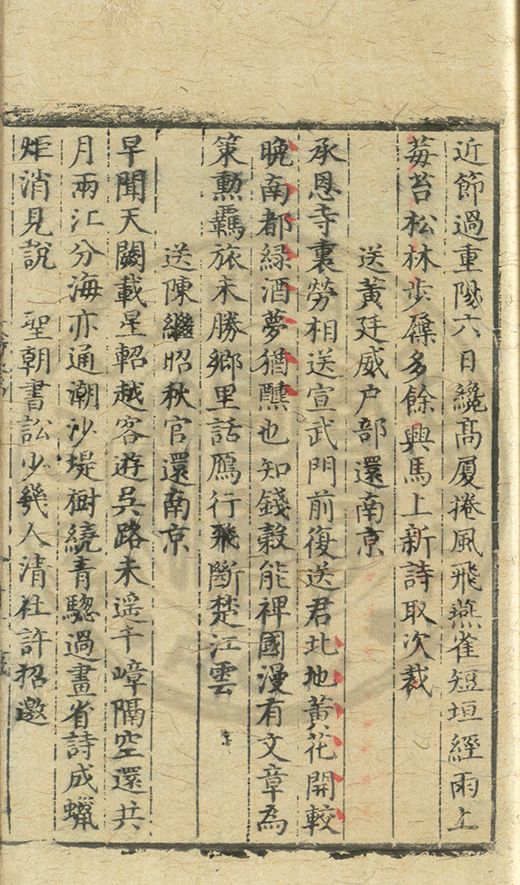 近節過重陽六日纔高厦捲風飛燕雀短垣經雨上
莓苔松林步屧多餘興馬上新詩取次裁
送黃廷威户部還南京
承恩寺裏勞相送宣武門前復送君北地黃花開較
晚南都綠酒夢猶醺也知錢穀能裨國漫有文章為
策勳羈旅未勝鄉里話鴈行飛斷楚江雲
送陳繼昭秋官還南京
早聞天闕載星軺越客遊吳路未遥千嶂隔空還共
月兩江分海亦通潮沙堤樹繞青驄過畫省詩成蠟
炬消見說　聖朝書訟少幾人清社許招邀